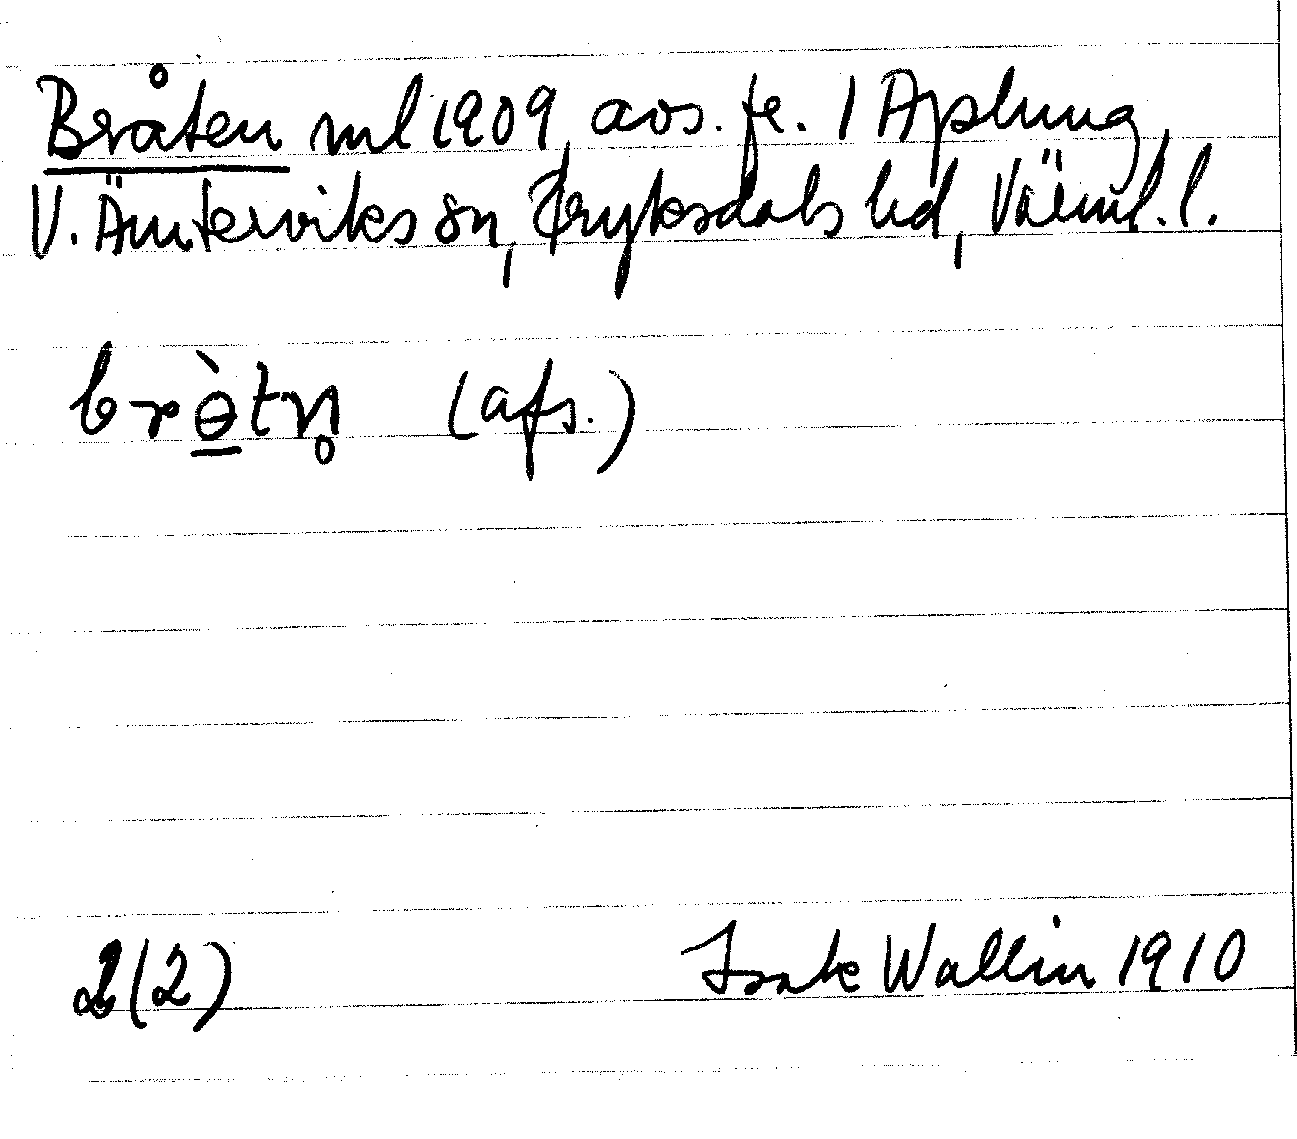 Bråten ml 1909 avs. fr. 1 Aplung,
V. Ämterviks sn, Fryksdals hd, Värml. l.
brɵ̀tn̥ (afs.)
2(2) Isak Wallin 1910